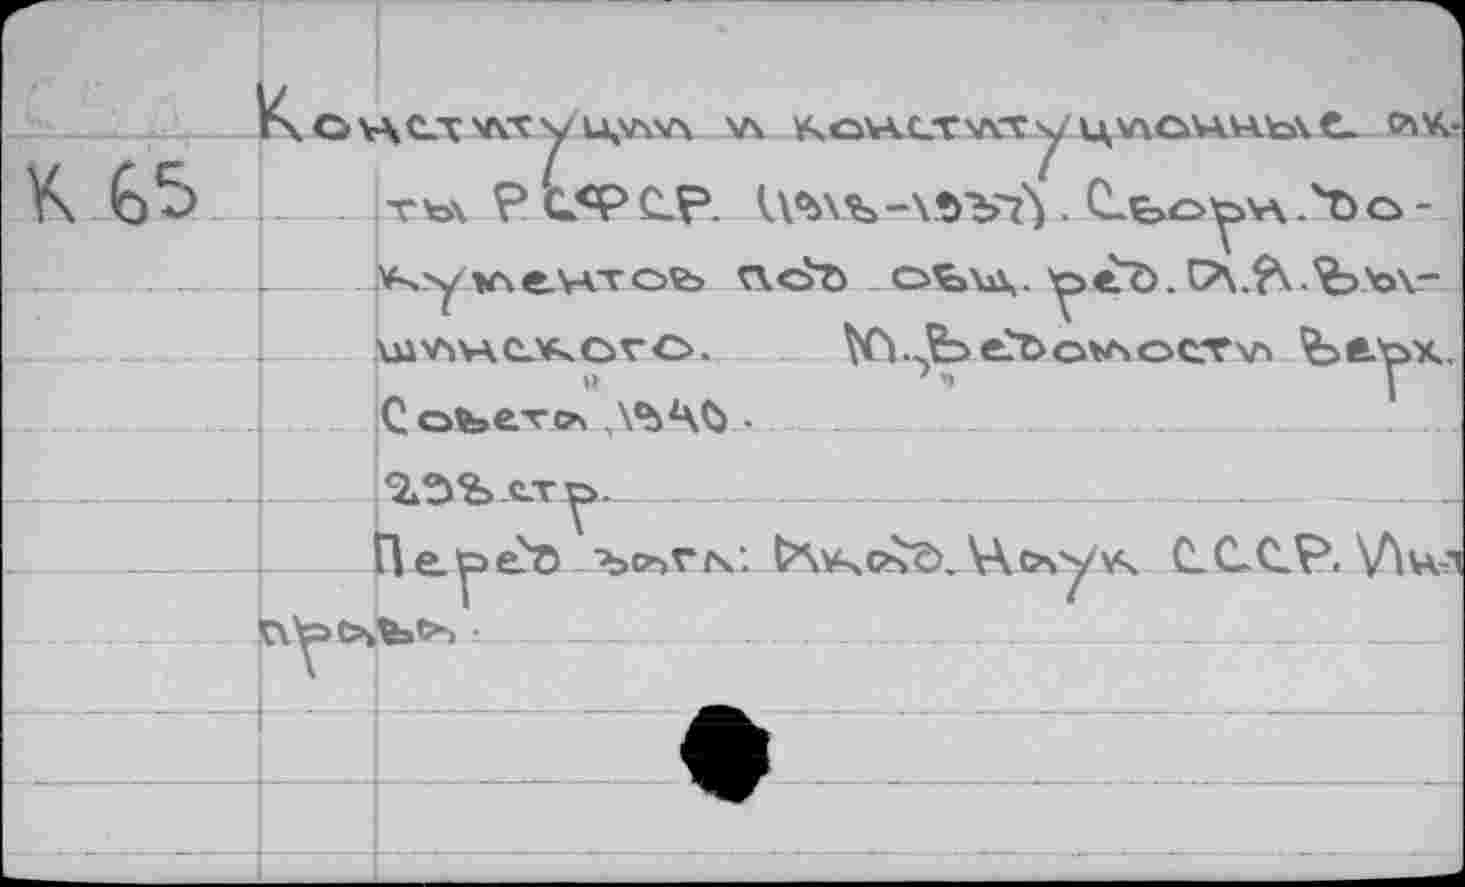 Конституции и конституционные ак-
К 65 ты РСФСР. (1918-1937). Сборн. до-
кументов под общ. ред. А.Я. Вы-
шинского. М., "Ведомости Верх.
Совета", 1940.
298 стр.
Перед загл: Акад. Наук СССР. Ин-т
права.